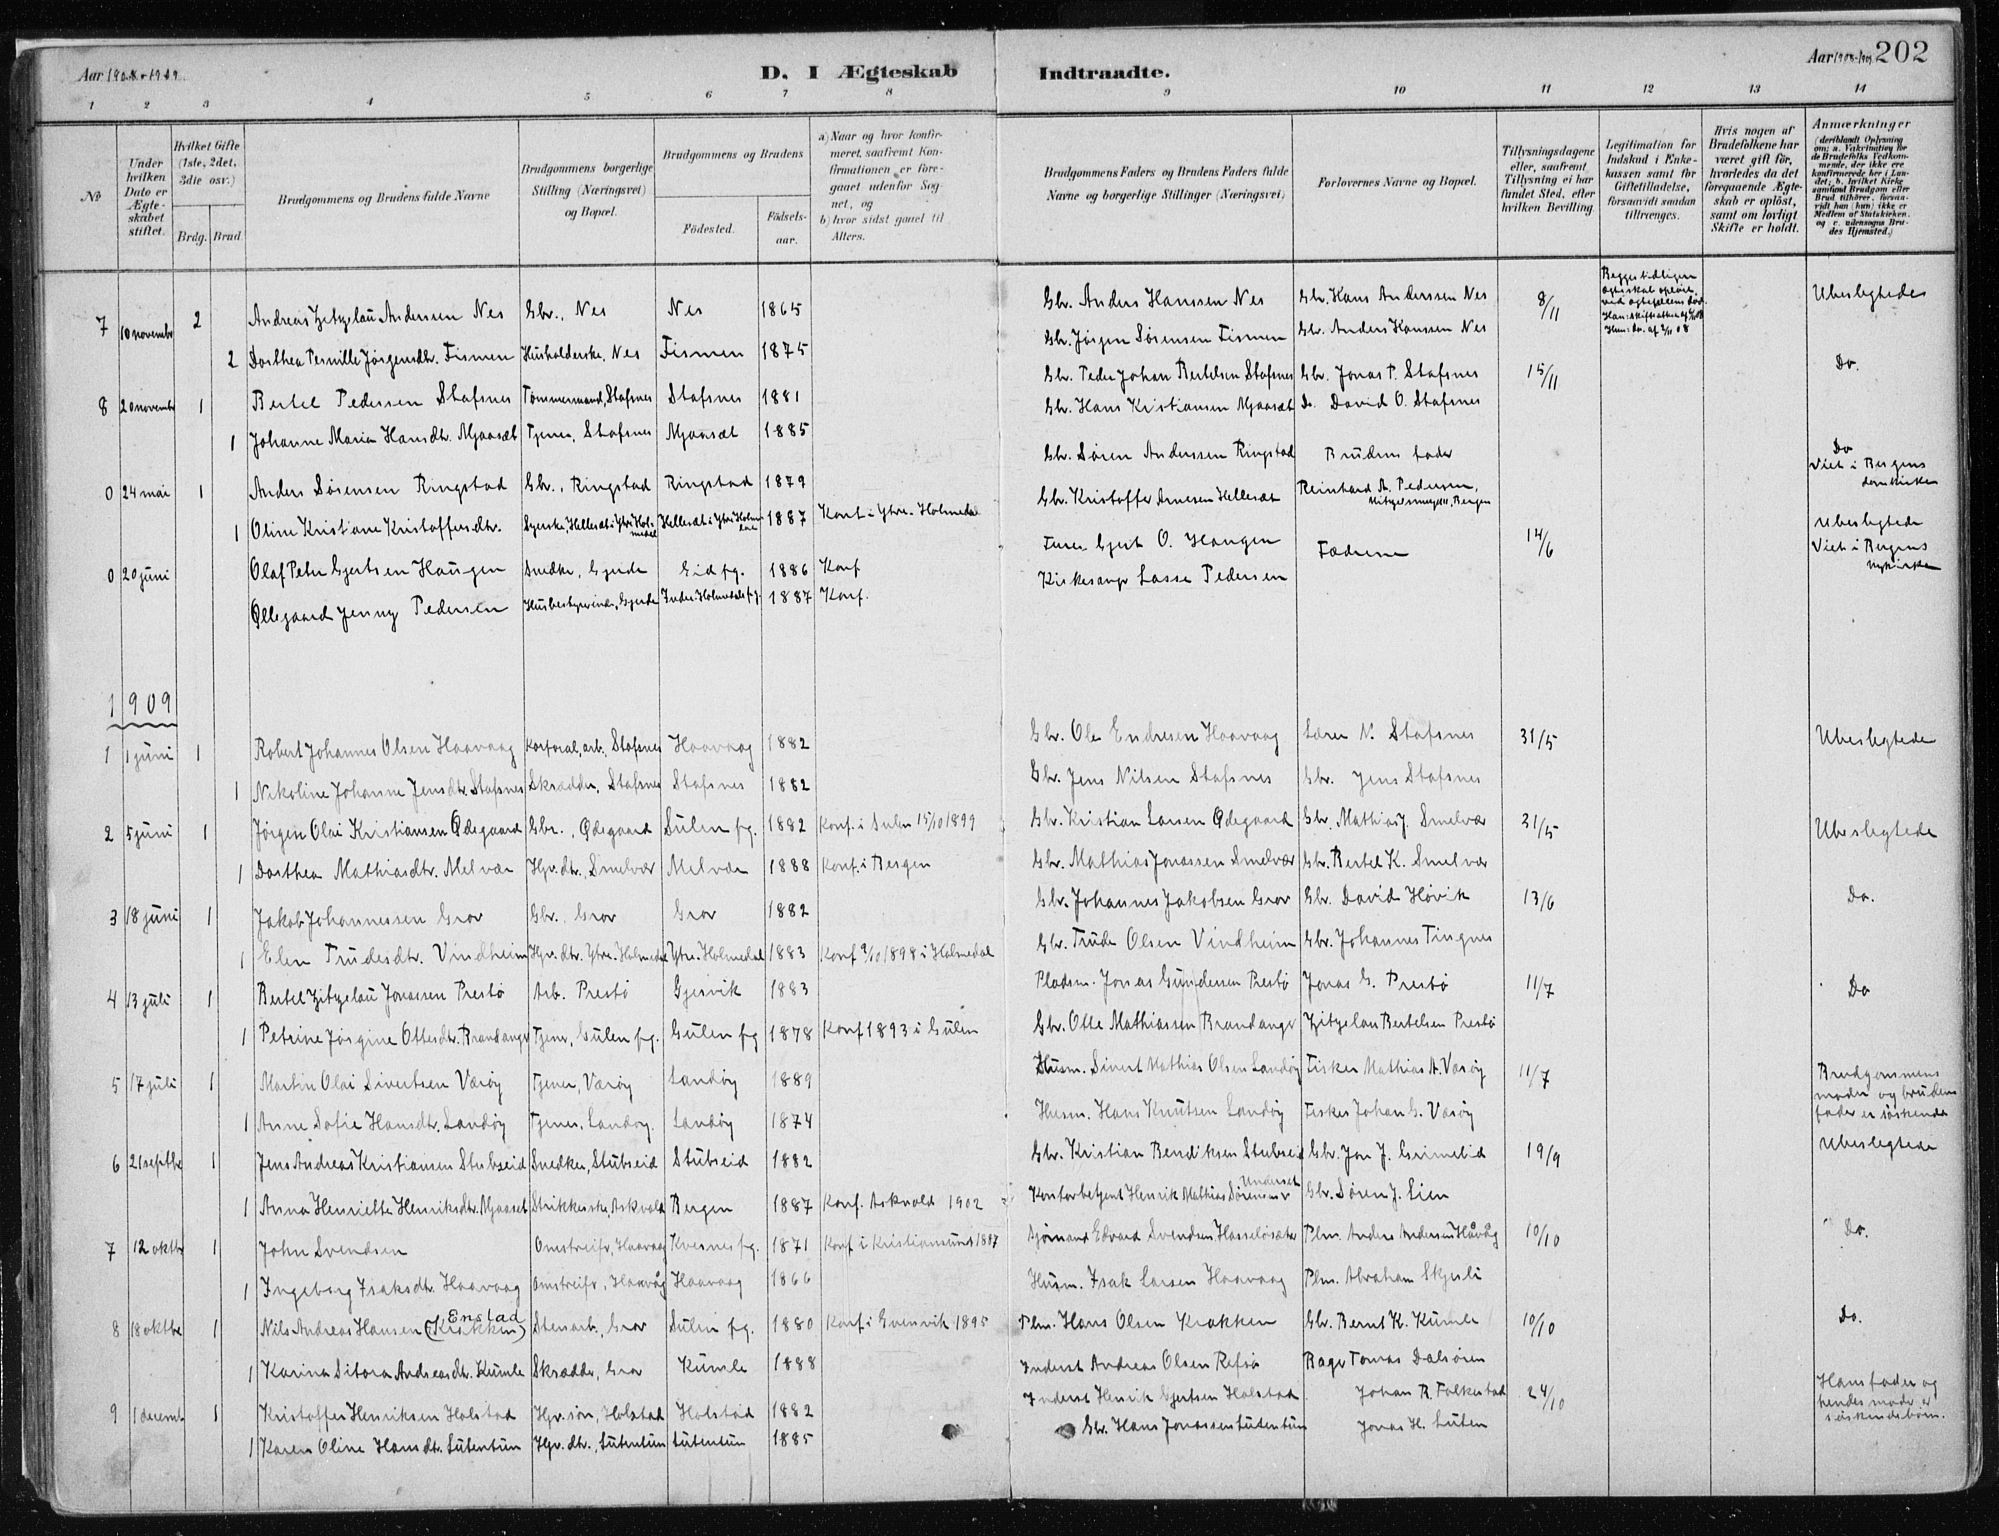 Aar 1908-1909.
D. I Ægteskab Indtraadte.
Aar 1908-1909 202
1 2 3 4 5 6 7 8 9 10 11 12 13 14
No
Under hvilken Dato er Ægteskabet stiftet.
Hvilket Gifte (1ste, 2det, 3die osv.)
Brdg. Brud
Brudgommens og Brudens fulde Navne
Brudgommens borgerlige Stilling (Næringsvei) og Bopæl.
Brudgommens og Brudens
Födested. Födsels-aar.
a) Naar og hvor konfirmeret, saafremt Konfirmationen er foregaaet udenfor Sognet, og
b) hvor sidst gaaet til Alters.
Brudgommens Faders og Brudens Faders fulde Navne og borgerlige Stillinger (Næringsvei)
Forlovernes Navne og Bopæl.
Tillysningsdagene eller, saafremt Tillysning ei har fundet Sted, efter hvilken Bevilling.
Legitimation for Indskud i Enkekassen samt for Giftetilladelse, forsaavidt saadan tiltrænges.
Hvis nogen af Brudefolkene har været gift før, hvorledes da det foregaaende Ægteskab er oplöst, samt om lovligt Skifte er holdt.
Anmærkninger
(deriblandt Oplysning om: a. Vakcination for de Brudefolks Vedkommende, der ikke ere konfirmerede her i Landet; b. hvilket Kirkesamfund Brudgom eller Brud tilhörer, forsaavidt han (hun) ikke er Medlem af Statskirken, og c. udensogns Brudes Hjemsted.)
7 10 novembr 2 Andreas Zetzelau Anderssen Nes Gbr., Nes Nes 1865 Gbr. Anders Hanssen Nes Gbr. Hans Anderssen Nes 8/11 Ubeslegtede
2 Dorthea Pernille Jørgensdtr. Tismen Husholderske, Nes Tismen 1875 Gbr. Jørgen Sørensen Tismen Gbr. Anders Hanssen Nes
8 20 novembr 1 Bertel Pedersen Stafsnes Tømmermand, Stafsnes Stafsnes 1881 Gbr. Peder Johan Bertelsen Stafsnes Gbr. Jonas P. Stafsnes 15/11 Do.
1 Johanne Marie Hansdtr. Mjaaset Tjener, Stafsnes Mjaaset 1885 Gbr. Hans Kristiansen Mjaaset Do. David O. Stafsnes
0 24 mai 1 Anders Sørensen Ringstad Gbr., Ringstad Ringstad 1879 Gbr. Søren Anderssen Ringstad Brudens fader Do Viet i Bergens domkirke
1 Oline Kristiane Kristoffersdtr. Syerske, Hellesæt i Ytre Holmedal Hellesæt i Ytre Holmedal 1887 Konf i Ytre-Holmedal Gbr. Kristoffer Hellesæt Reinhard A. Pedersen, Bergen
0 20 juni Olaf Peter Gjertsen Haugen Snedker, Gjerde Eid pg. 1886 Konf Gjert O. Haugen Fædrene 14/6 Ubeslegtede Viet i Bergens nykirke
Øllegaard Jenny Pedersen Husbestyrerinde, Gjerde Indre-Holmedals pg. 1887 Konf. Kirkesanger Lasse Pedersen
1909
1 1 juni 1 Robert Johannes Olsen Haavaag Korporal, arb. Stafsnes Haavaag 1882 Gbr. Ole Endresen Haavaag Lærer N. Stafsnes 31/5 Ubeslegtede
1 Nikoline Johanne Jensdtr. Stafsnes Skrædder, Stafsnes Stafsnes 1882 Gbr. Jens Nilsen Stafsnes Gbr. Jens Stafsnes
2 5 juni 1 Jørgen Olai Kristiansen Ødegaard Gbr., Ødegaard Sulen pg. 1882 Konf. i Sulen 15/10 1899 Gbr. Kristian Larsen Ødegaard Gbr. Mathias J. Smelvær 31/5 Ubeslegtede
1 Dorthea Mathiasdtr. Melvær Hgv. dtr., Smelvær Melvær 1888 Konf. i Bergen Gbr. Mathias Jonassen Smelvær Gbr. Bertel K. Smelvær
3 18 juni 1 Jakob Johannessen Grov Gbr. Grov Grov 1882 Gbr. Johannes Jakobsen Grov Gbr. David Høvik 13/6 Do.
1 Elen Trudesdtr. Vindheim Hgv. dtr. Ytre-Holmedal Ytre-Holmedal 1883 Konf 2/10 1898 i Holmedal Gbr. Trude Olsen Vindheim Gbr. Johannes Tingnes
4 13 juli 1 Bertel Zetzelau Jonassen Prestø Arb. Prestø Gjesvik 1883 Pladsm. Jonas Gundersen Prestø Jonas G. Prestø 11/7 Do
1 Petrine Jørgine Ottesdtr. Brandanger Tjener, Gulen pg. Gulen pg 1878 Konf 1893 i Gulen Gbr. Otte Mathiassen Brandanger Zetzelau Bertelsen Prestø
5 17 juli 1 Martin Olai Sivertsen Værøy Tjener, Værøy Landøy 1889 Husm. Sivert Mathias Olsen Landøy Fisker Mathias A. Værøy 11/7 Brudgommens moder og brudens fader er søskende
1 Anne Sofie Hansdtr. Landøy Tjener, Landøy. Landøy 1874 Husm. Hans Knutsen Landøy Fisker Johan G. Værøy
6 21 septbr 1 Jens Andreas Kristiansen Stubseid Snedker, Stubseid Stubseid 1882 Gbr. Kristian Bendiksen Stubseid Gbr. Jon J. Grimelid 19/9 Ubeslegtede
1 Anna Henriette Henriksdtr. Mjaaset Strikkerske, Askvold Bergen 1887 Konf. Askvold 1902 Kontorbetjent Henrik Mathias Sørensen Underset Gbr. Søren J. Lien
7 12 oktbr 1 John Svendsen Omstreifer, Haavaag Kvernes pg. 1871 Konf i Kristiansund 1887 Sjømand Edvard Svendsen, Hasseløsæter Plm. Anders Andersen Håvåg 10/10 Do.
1 Ingeborg Isaksdtr. Haavaag Omstreifer, Haavåg Haavaag 1866 Husm. Isak Larsen Haavaag Plm. Abraham Skjerli
8 18 oktbr 1 Nils Andreas Hansen (Krakken) Enstad Stenarb., Grov Sulen pg. 1880 Konf. i Evenvik 1895 Plm. Hans Olsen Krakken Gbr. Bernt K. Kumle 10/10 Do.
1 Karina Sitora Andreasdtr. Kumle Skrædder, Grov Kumle 1888 Inderst Andreas Olsen Refsø Bager Tomas Dalsøren
9 1 decemb 1 Kristoffer Henriksen Holstad Hgv. søn, Holstad Holstad 1882 Inderst Henrik Gjertsen Holstad Johan R. Folkestad 24/10 Hans fader og hendes moder er søskendebørn.
1 Karen Oline Hansdtr. Lutentun Hgv. dtr., Lutentun Lutentun 1885 Gbr. Hans Jonassen Lutentun Jonas H. Luten